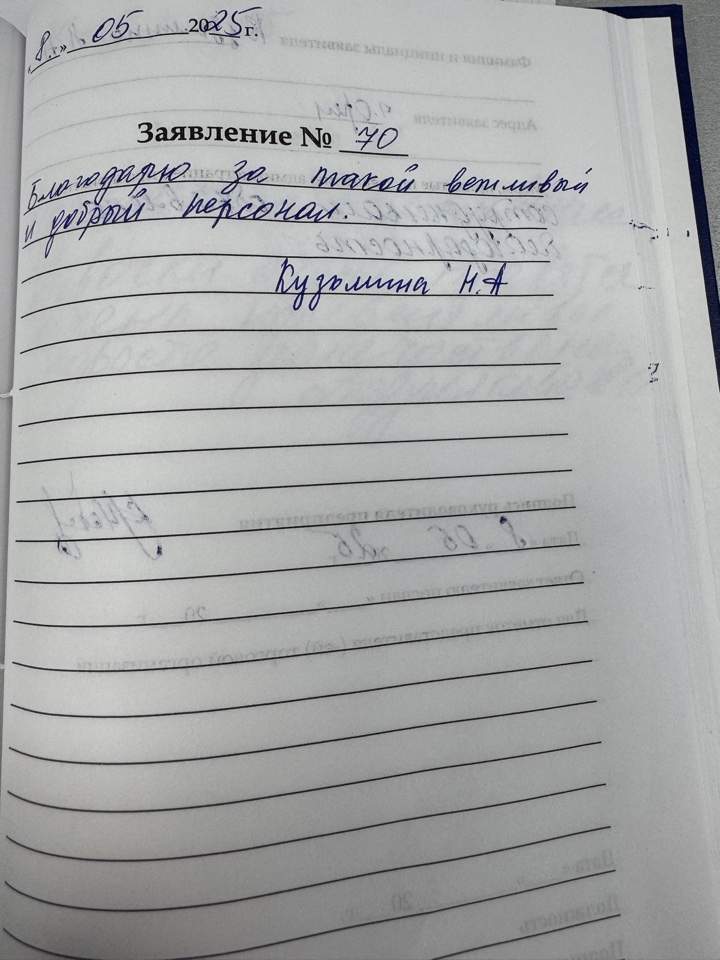 8.г» 05 2025 г.
Заявление № 70
Благодарю за такой вежливый
и добрый персонал.
Кузьмина Н.А